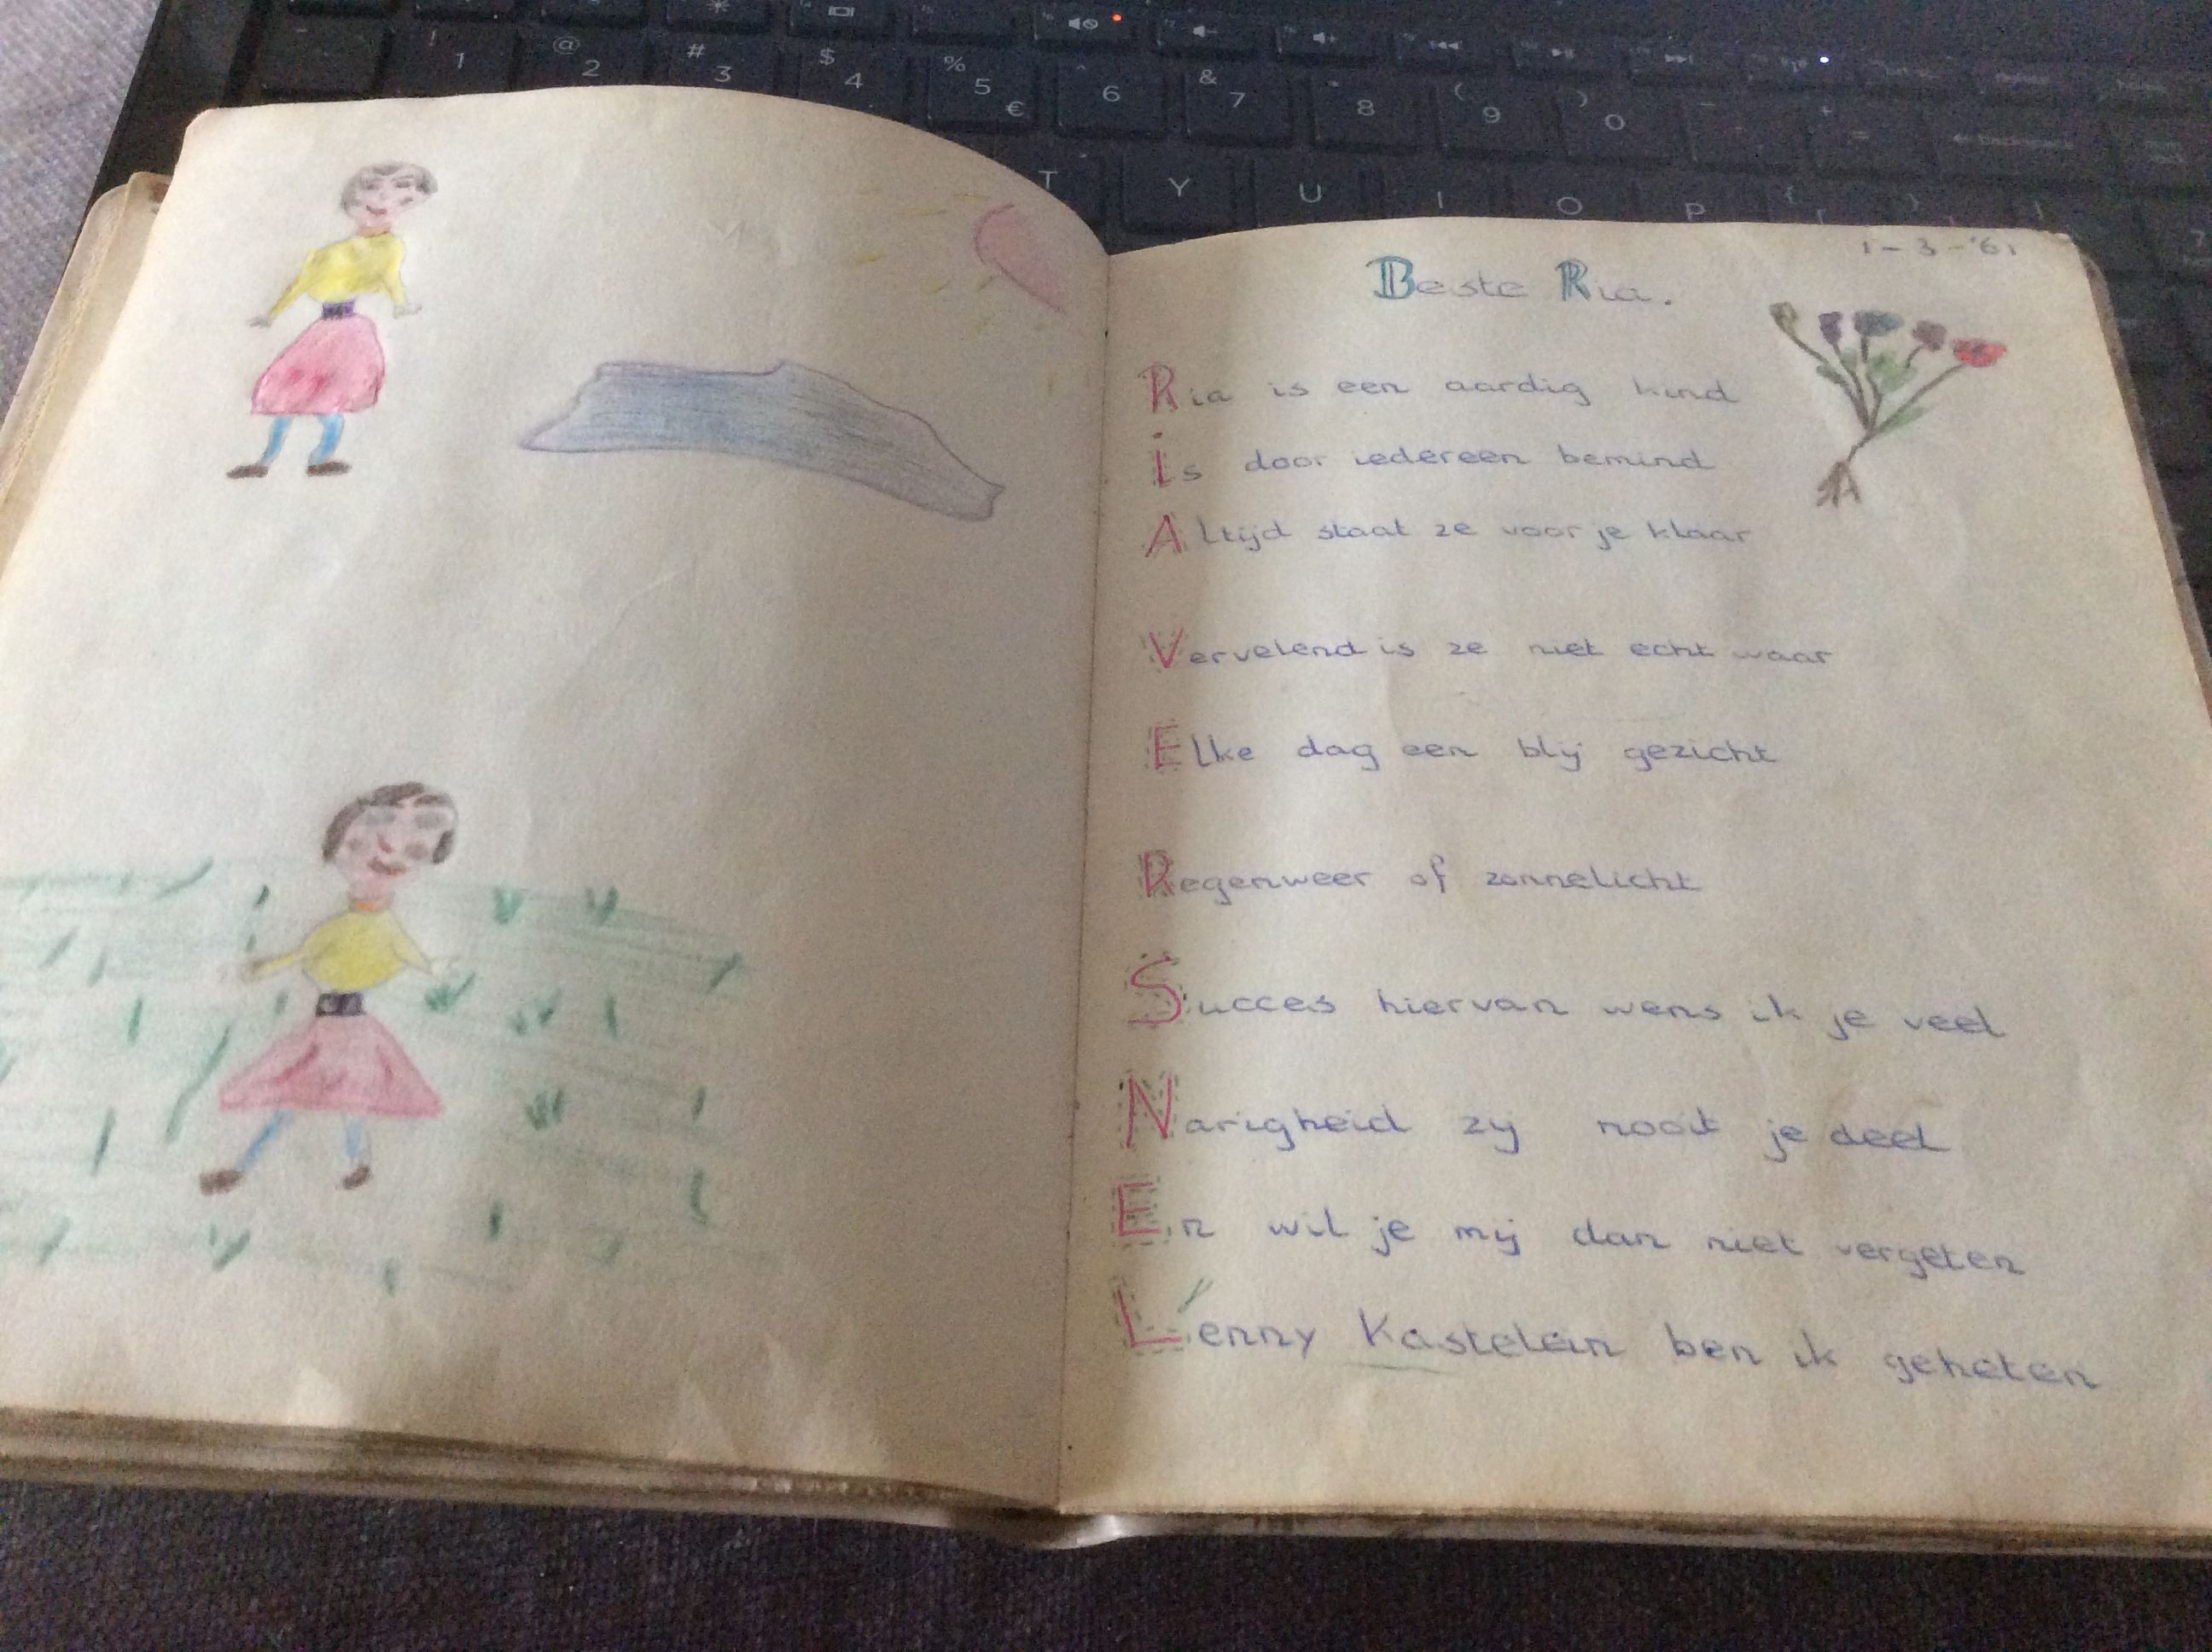 ! 1
@ 2
# 3
$ 4
% 5 €
^ 6
& 7
* 8
( 9
) 0
T Y U I O P
1-3-'61
Beste Ria.
Ria is een aardig kind
is door iedereen bemind
Altijd staat ze voor je klaar
Vervelend is ze niet echt waar
Elke dag een blij gezicht
Regenweer of zonnelicht
Succes hiervan wens ik je veel
Narigheid zij nooit je deel
En wil je mij dan niet vergeten
Lenny Kastelein ben ik geheten